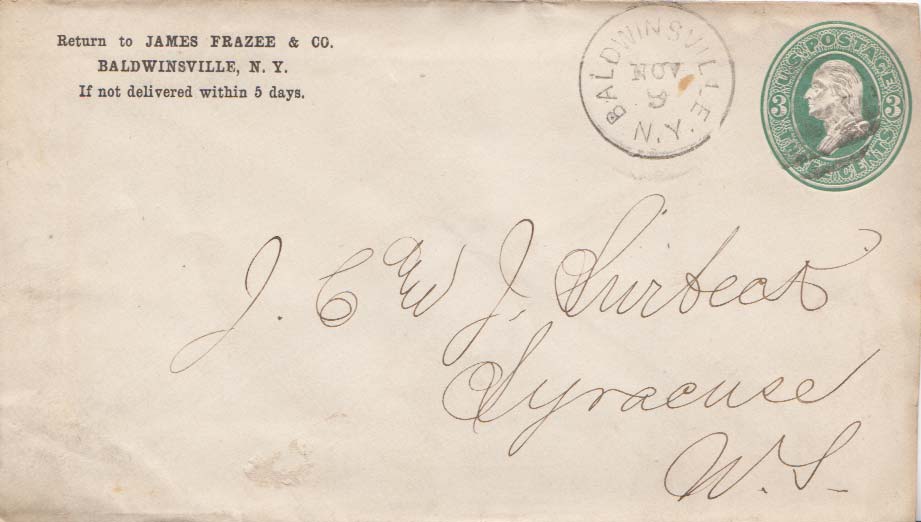 Return to JAMES FRAZEE & CO.
BALDWINSVILLE, N. Y.
If not delivered within 5 days.
BALDWINSVILLE
NOV
9
N.Y.
U.S. POSTAGE
3 3
THREE CENTS
J. C. & W J.
Syracuse